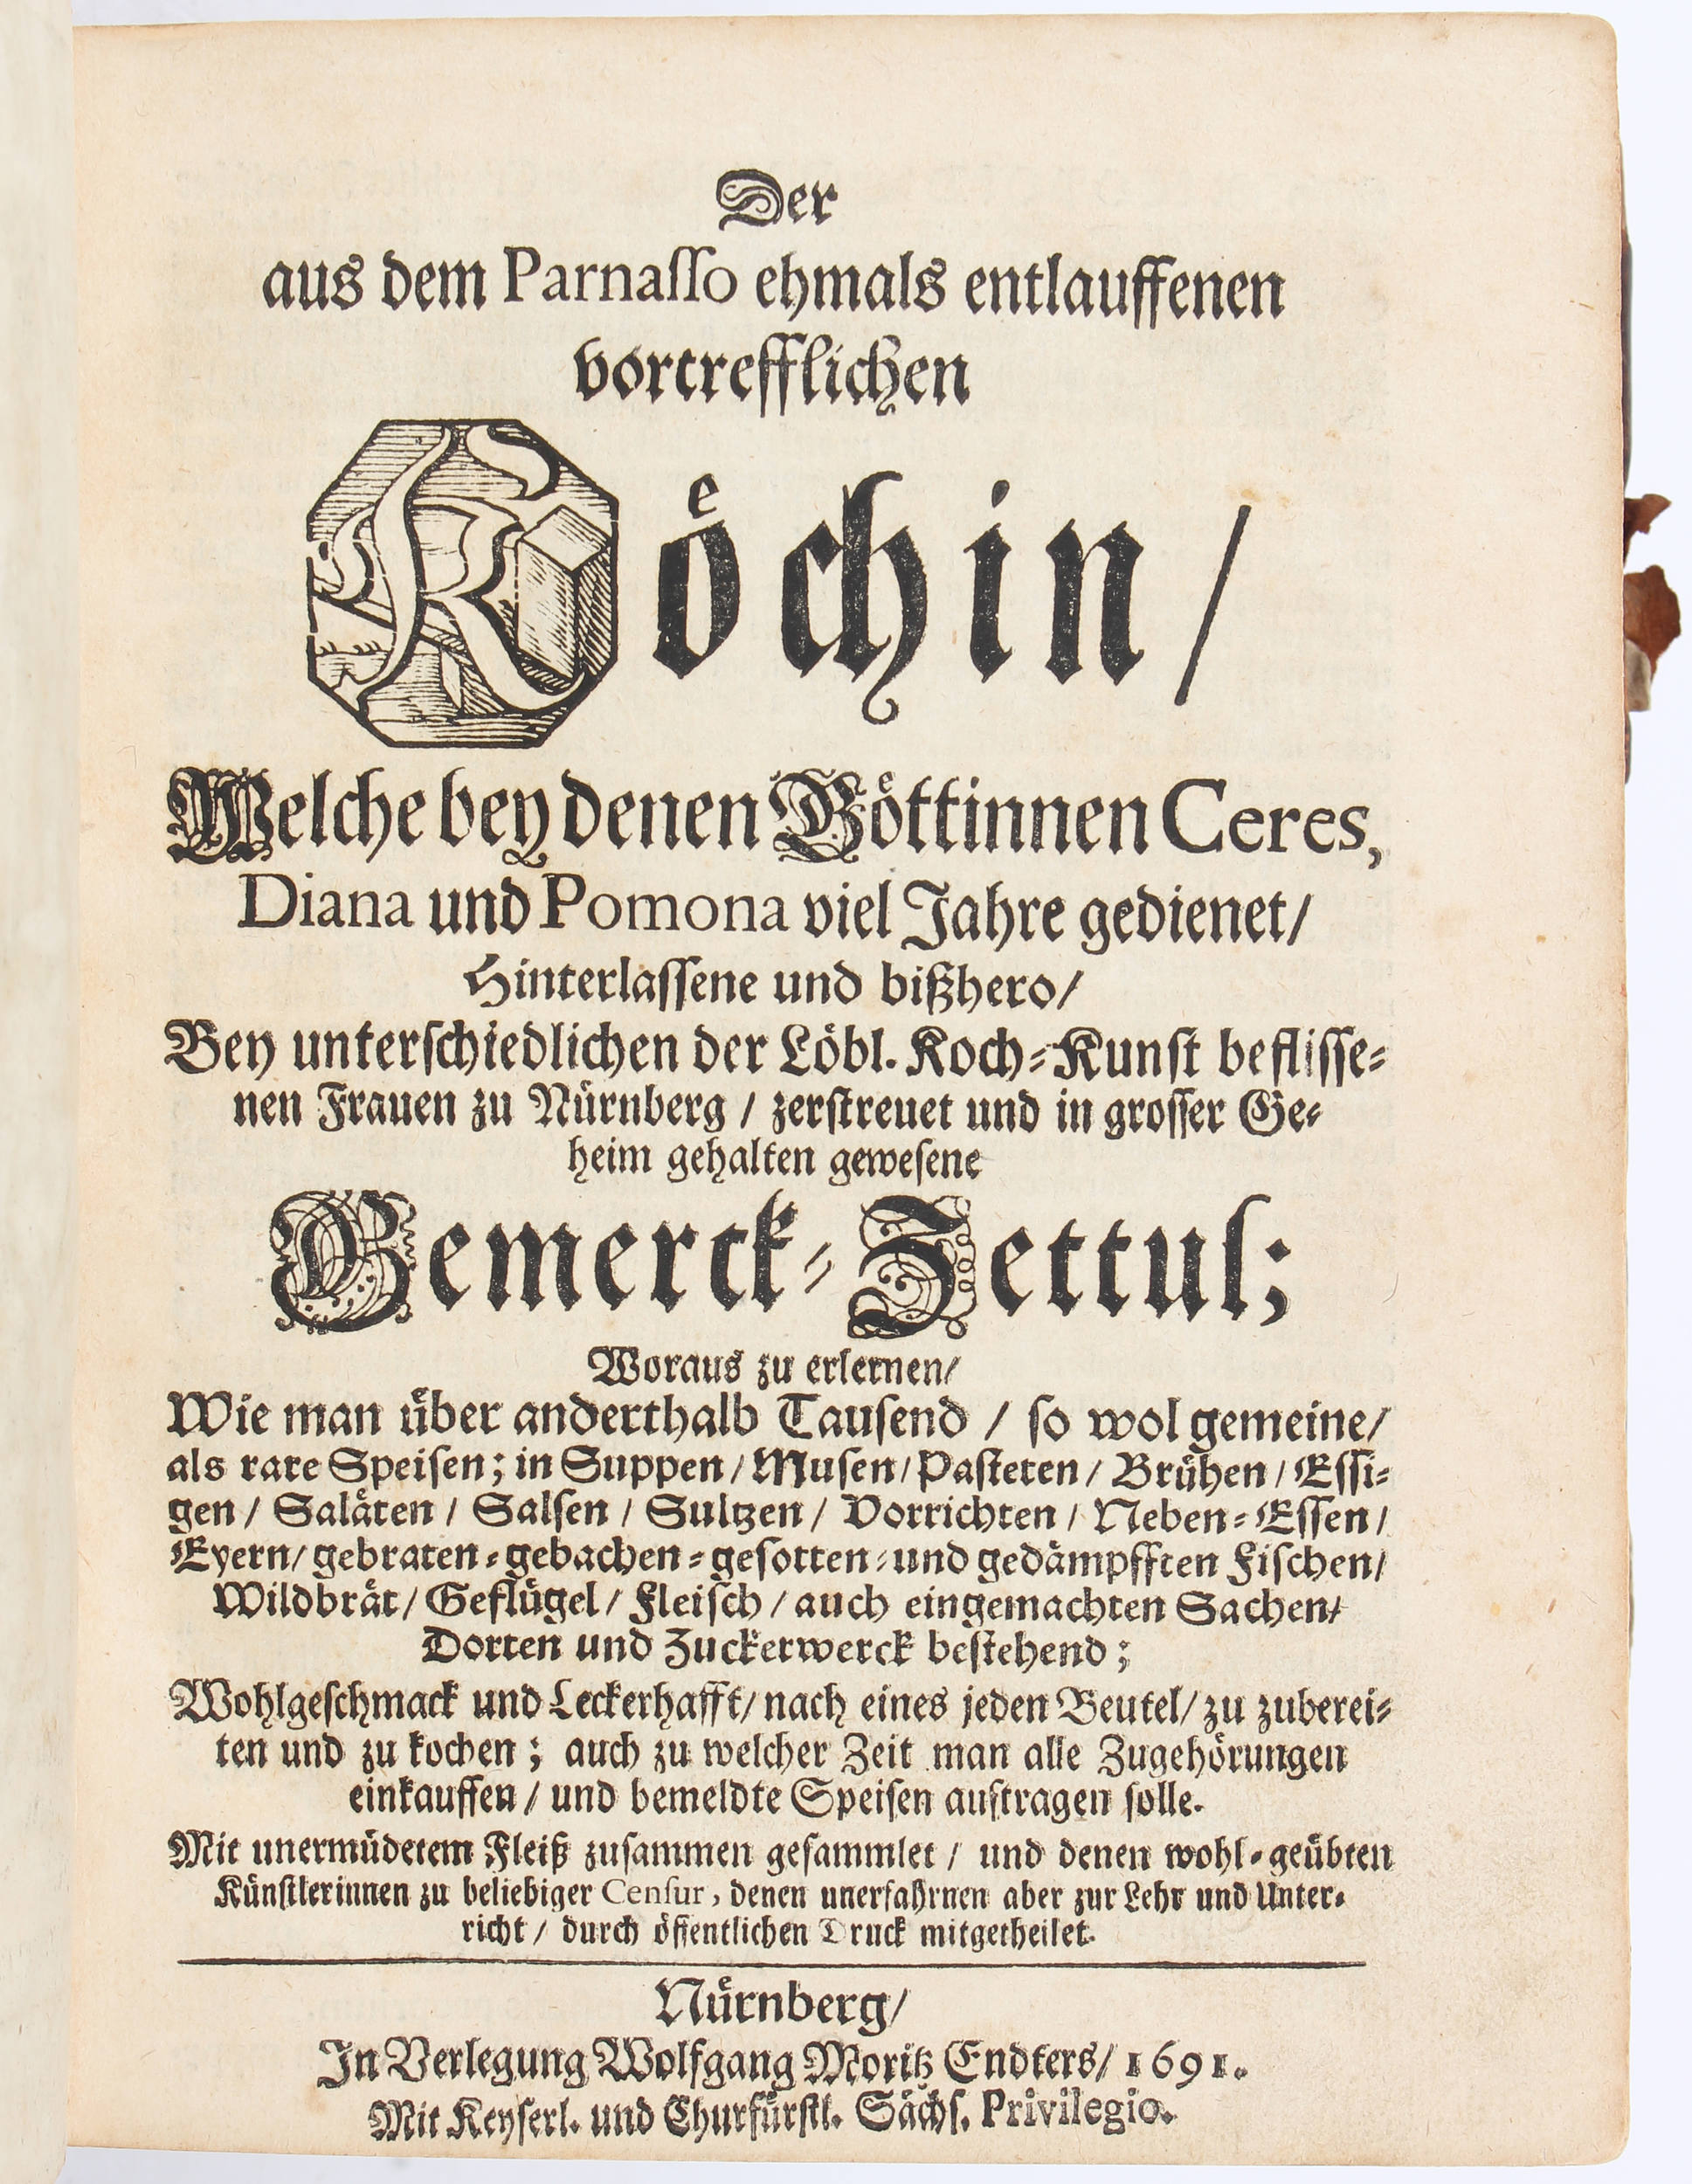 Der
aus dem Parnaſſo ehmals entlauffenen
vortrefflichen
Koͤchin /
Welche bey denen Goͤttinnen Ceres,
Diana und Pomona viel Jahre gedienet /
Hinterlaſſene und bißhero /
Bey unterſchiedlichen der Loͤbl. Koch-Kunſt befliſſe-
nen Frauen zu Nuͤrnberg / zerſtreuet und in groſſer Ge-
heim gehalten geweſene
Gemerck-Zettul;
Woraus zu erlernen /
Wie man uͤber anderthalb Tauſend / ſo wol gemeine /
als rare Speiſen; in Suppen / Muſen / Paſteten / Bruͤhen / Eſſi-
gen / Salaͤten / Salſen / Sultzen / Vorrichten / Neben-Eſſen /
Eyern / gebraten-gebachen-geſotten-und gedaͤmpfften Fiſchen /
Wildbraͤt / Gefluͤgel / Fleiſch / auch eingemachten Sachen /
Dorten und Zuckerwerck beſtehend;
Wohlgeſchmack und Leckerhafft / nach eines jeden Beutel / zu zuberei-
ten und zu kochen; auch zu welcher Zeit man alle Zugehoͤrungen
einkauffen / und bemeldte Speiſen auftragen ſolle.
Mit unermuͤdetem Fleiß zuſammen geſammlet / und denen wohl-geuͤbten
Kuͤnſtlerinnen zu beliebiger Cenſur, denen unerfahrnen aber zur Lehr und Unter-
richt / durch oͤffentlichen Druck mitgetheilet.
Nuͤrnberg /
In Verlegung Wolfgang Moritz Endters / 1691.
Mit Keyſerl. und Churfuͤrſtl. Saͤchſ. Privilegio.